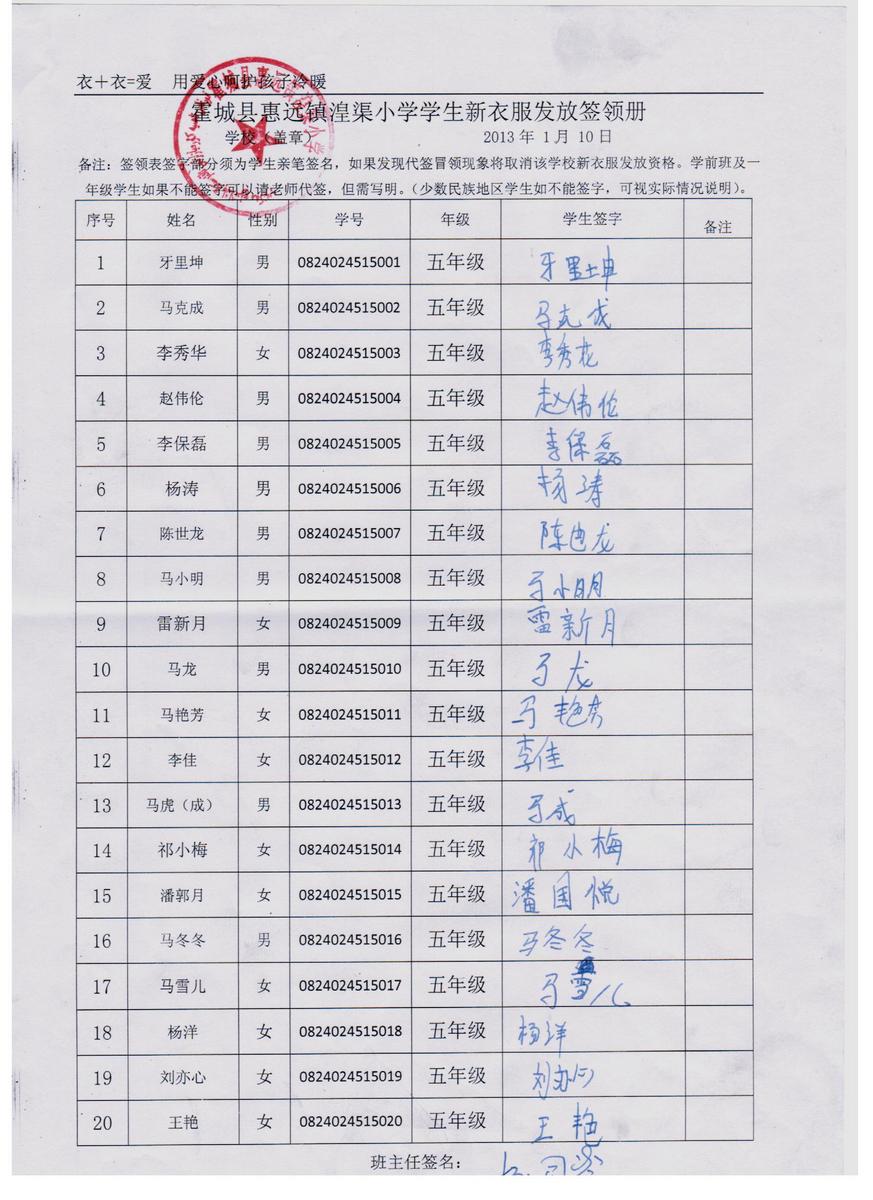 衣＋衣=爱 用爱心呵护孩子冷暖
霍城县惠远镇湟渠小学学生新衣服发放签领册
学校（盖章） 2013 年 1 月 10 日
备注：签领表签字部分须为学生亲笔签名，如果发现代签冒领现象将取消该学校新衣服发放资格。学前班及一
年级学生如果不能签字可以请老师代签，但需写明。（少数民族地区学生如不能签字，可视实际情况说明）。
序号 姓名 性别 学号 年级 学生签字 备注
1 牙里坤 男 0824024515001 五年级 牙里坤
2 马克成 男 0824024515002 五年级 马克成
3 李秀华 女 0824024515003 五年级 李秀花
4 赵伟伦 男 0824024515004 五年级 赵伟伦
5 李保磊 男 0824024515005 五年级 李保磊
6 杨涛 男 0824024515006 五年级 杨涛
7 陈世龙 男 0824024515007 五年级 陈世龙
8 马小明 男 0824024515008 五年级 马小明
9 雷新月 女 0824024515009 五年级 雷新月
10 马龙 男 0824024515010 五年级 马龙
11 马艳芳 女 0824024515011 五年级 马艳芳
12 李佳 女 0824024515012 五年级 李佳
13 马虎（成） 男 0824024515013 五年级 马成
14 祁小梅 女 0824024515014 五年级 祁小梅
15 潘郭月 女 0824024515015 五年级 潘国悦
16 马冬冬 男 0824024515016 五年级 马冬冬
17 马雪儿 女 0824024515017 五年级 马雪儿
18 杨洋 女 0824024515018 五年级 杨洋
19 刘亦心 女 0824024515019 五年级 刘亦心
20 王艳 女 0824024515020 五年级 王艳
班主任签名：